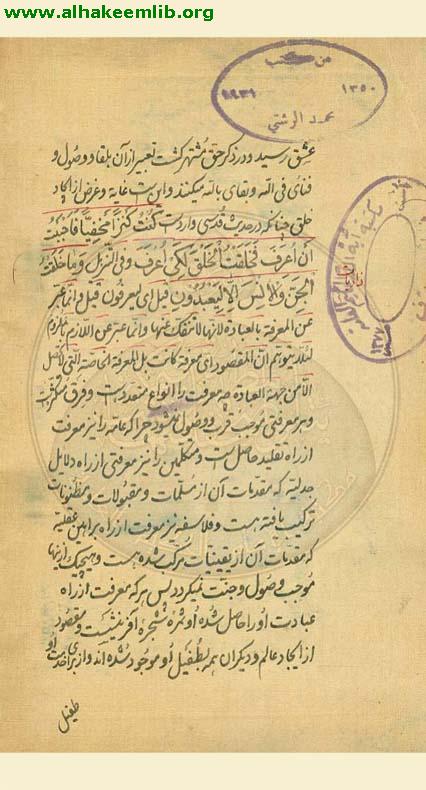 www.alhakeemlib.org
من کتب
١٣٥٠
١٩٣١
محمد الرشتي
عشق رسید و در ذکر حق مشتهر گشت تعبیر از آن بلقاء و وصول و
فنای فی الله و بقای بالله میکنند و این است غایه و غرض از ایجاد
خلق چنانکه در حدیث قدسی وارد است کُنْتُ کَنْزاً مَخْفِیّاً فَاَحْبَبْتُ
اَنْ اُعْرَفَ فَخَلَقْتُ الْخَلْقَ لِکَیْ اُعْرَفَ وفی التنزیل وَمَا خَلَقْتُ
الْجِنَّ وَالْاِنْسَ اِلَّا لِیَعْبُدُونِ قیل ای لیعرفون قیل وانما عبر
عن المعرفة بالعبادة لانها لا تنفک عنها وانما عبر عن اللازم بالملزوم
لئلا یتوهم ان المقصود ای معرفة کانت بل المعرفة الخاصة التی لا تحصل
الا من جهة العبادة چه معرفت را انواع متعدده است و فرق متکثره است
و هر معرفتی موجب قرب و وصول نمیشود چرا که عامه را نیز معرفت
از راه تقلید حاصل است و متکلمین را نیز معرفتی از راه دلایل
جدلیه که مقدمات آن از مسلمات و مقبولات و مظنونات
ترکیب یافته هست و فلاسفه نیز معرفت از راه براهین عقلیه
که مقدمات آن از یقینیات مرکب شده هست و هیچیک از اینها
موجب وصول و جنت نمیگردد پس هر که معرفت از راه
عبادت او را حاصل شد او ثمره شجره آفرینش است و مقصود
از ایجاد عالم و دیگران همه بطفیل او موجود شده اند و از برای خدمت او
طفیل